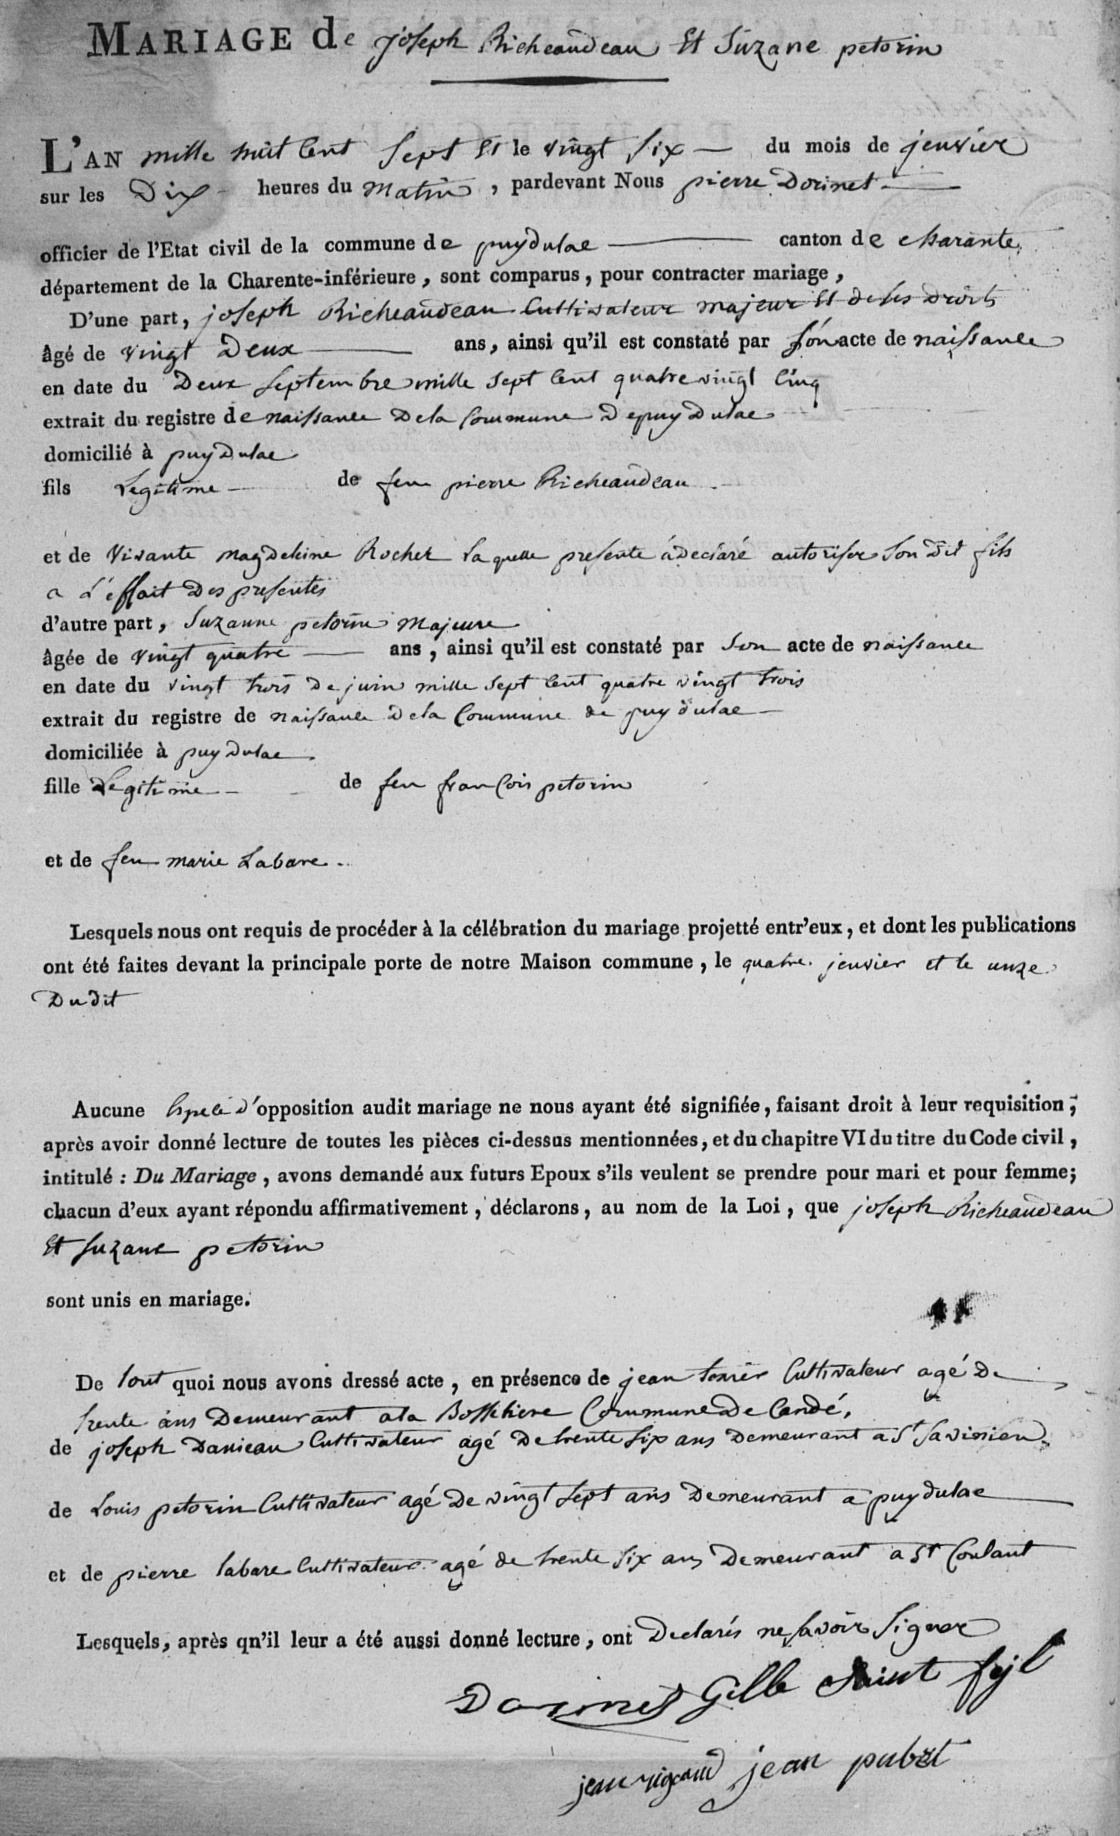 MARIAGE de joseph Richeaudeau Et Suzane petorin
L'AN mille huit Cent Sept Et le vingt Six du mois de jenvier
sur les Dix heures du Matin, pardevant Nous pierre Dorinet
officier de l'Etat civil de la commune de puydulac canton de charante
département de la Charente-inférieure, sont comparus, pour contracter mariage,
D'une part, joseph Richeaudeau Cultivateur majeur Et de ses Droits
âgé de vingt Deux ans, ainsi qu'il est constaté par son acte de naissance
en date du Deux septembre mille sept Cent quatre vingt Cinq
extrait du registre de naissance Dela Commune De puy Dulac
domicilié à puy Dulac
fils Legitime de feu pierre Richeaudeau
et de vivante magdeleine Rocher Laquelle presente a declaré autoriser Son Dit fils
a L'effait Des presentes
d'autre part, Suzanne petorin Majeure
âgée de vingt quatre ans, ainsi qu'il est constaté par Son acte de naissance
en date du vingt trois De juin mille sept Cent quatre vingt trois
extrait du registre de naissance Dela Commune de puy dulac
domiciliée à puy Dulac
fille Legitime de feu francois petorin
et de feu marie Labare
Lesquels nous ont requis de procéder à la célébration du mariage projetté entr'eux, et dont les publications
ont été faites devant la principale porte de notre Maison commune, le quatre jenvier et le unze
Dudit
Aucune Espece d'opposition audit mariage ne nous ayant été signifiée, faisant droit à leur requisition;
après avoir donné lecture de toutes les pièces ci-dessus mentionnées, et du chapitre VI du titre du Code civil,
intitulé : Du Mariage, avons demandé aux futurs Epoux s'ils veulent se prendre pour mari et pour femme;
chacun d'eux ayant répondu affirmativement, déclarons, au nom de la Loi, que joseph Richeaudeau
Et suzane petorin
sont unis en mariage.
De tout quoi nous avons dressé acte, en présence de jean Cultivateur agé De
trente ans Demeurant ala Commune De Candé,
de joseph Danieau Cultivateur agé De trente six ans Demeurant a St Savinien
de Louis petorin Cultivateur agé De vingt sept ans Demeurant a puydulac
et de pierre labare Cultivateur agé de trente six ans Demeurant a St Coulant
Lesquels, après qn'il leur a été aussi donné lecture, ont Declarés ne savoir Signer
Dorinet Gille Saint
jean rigaud jean